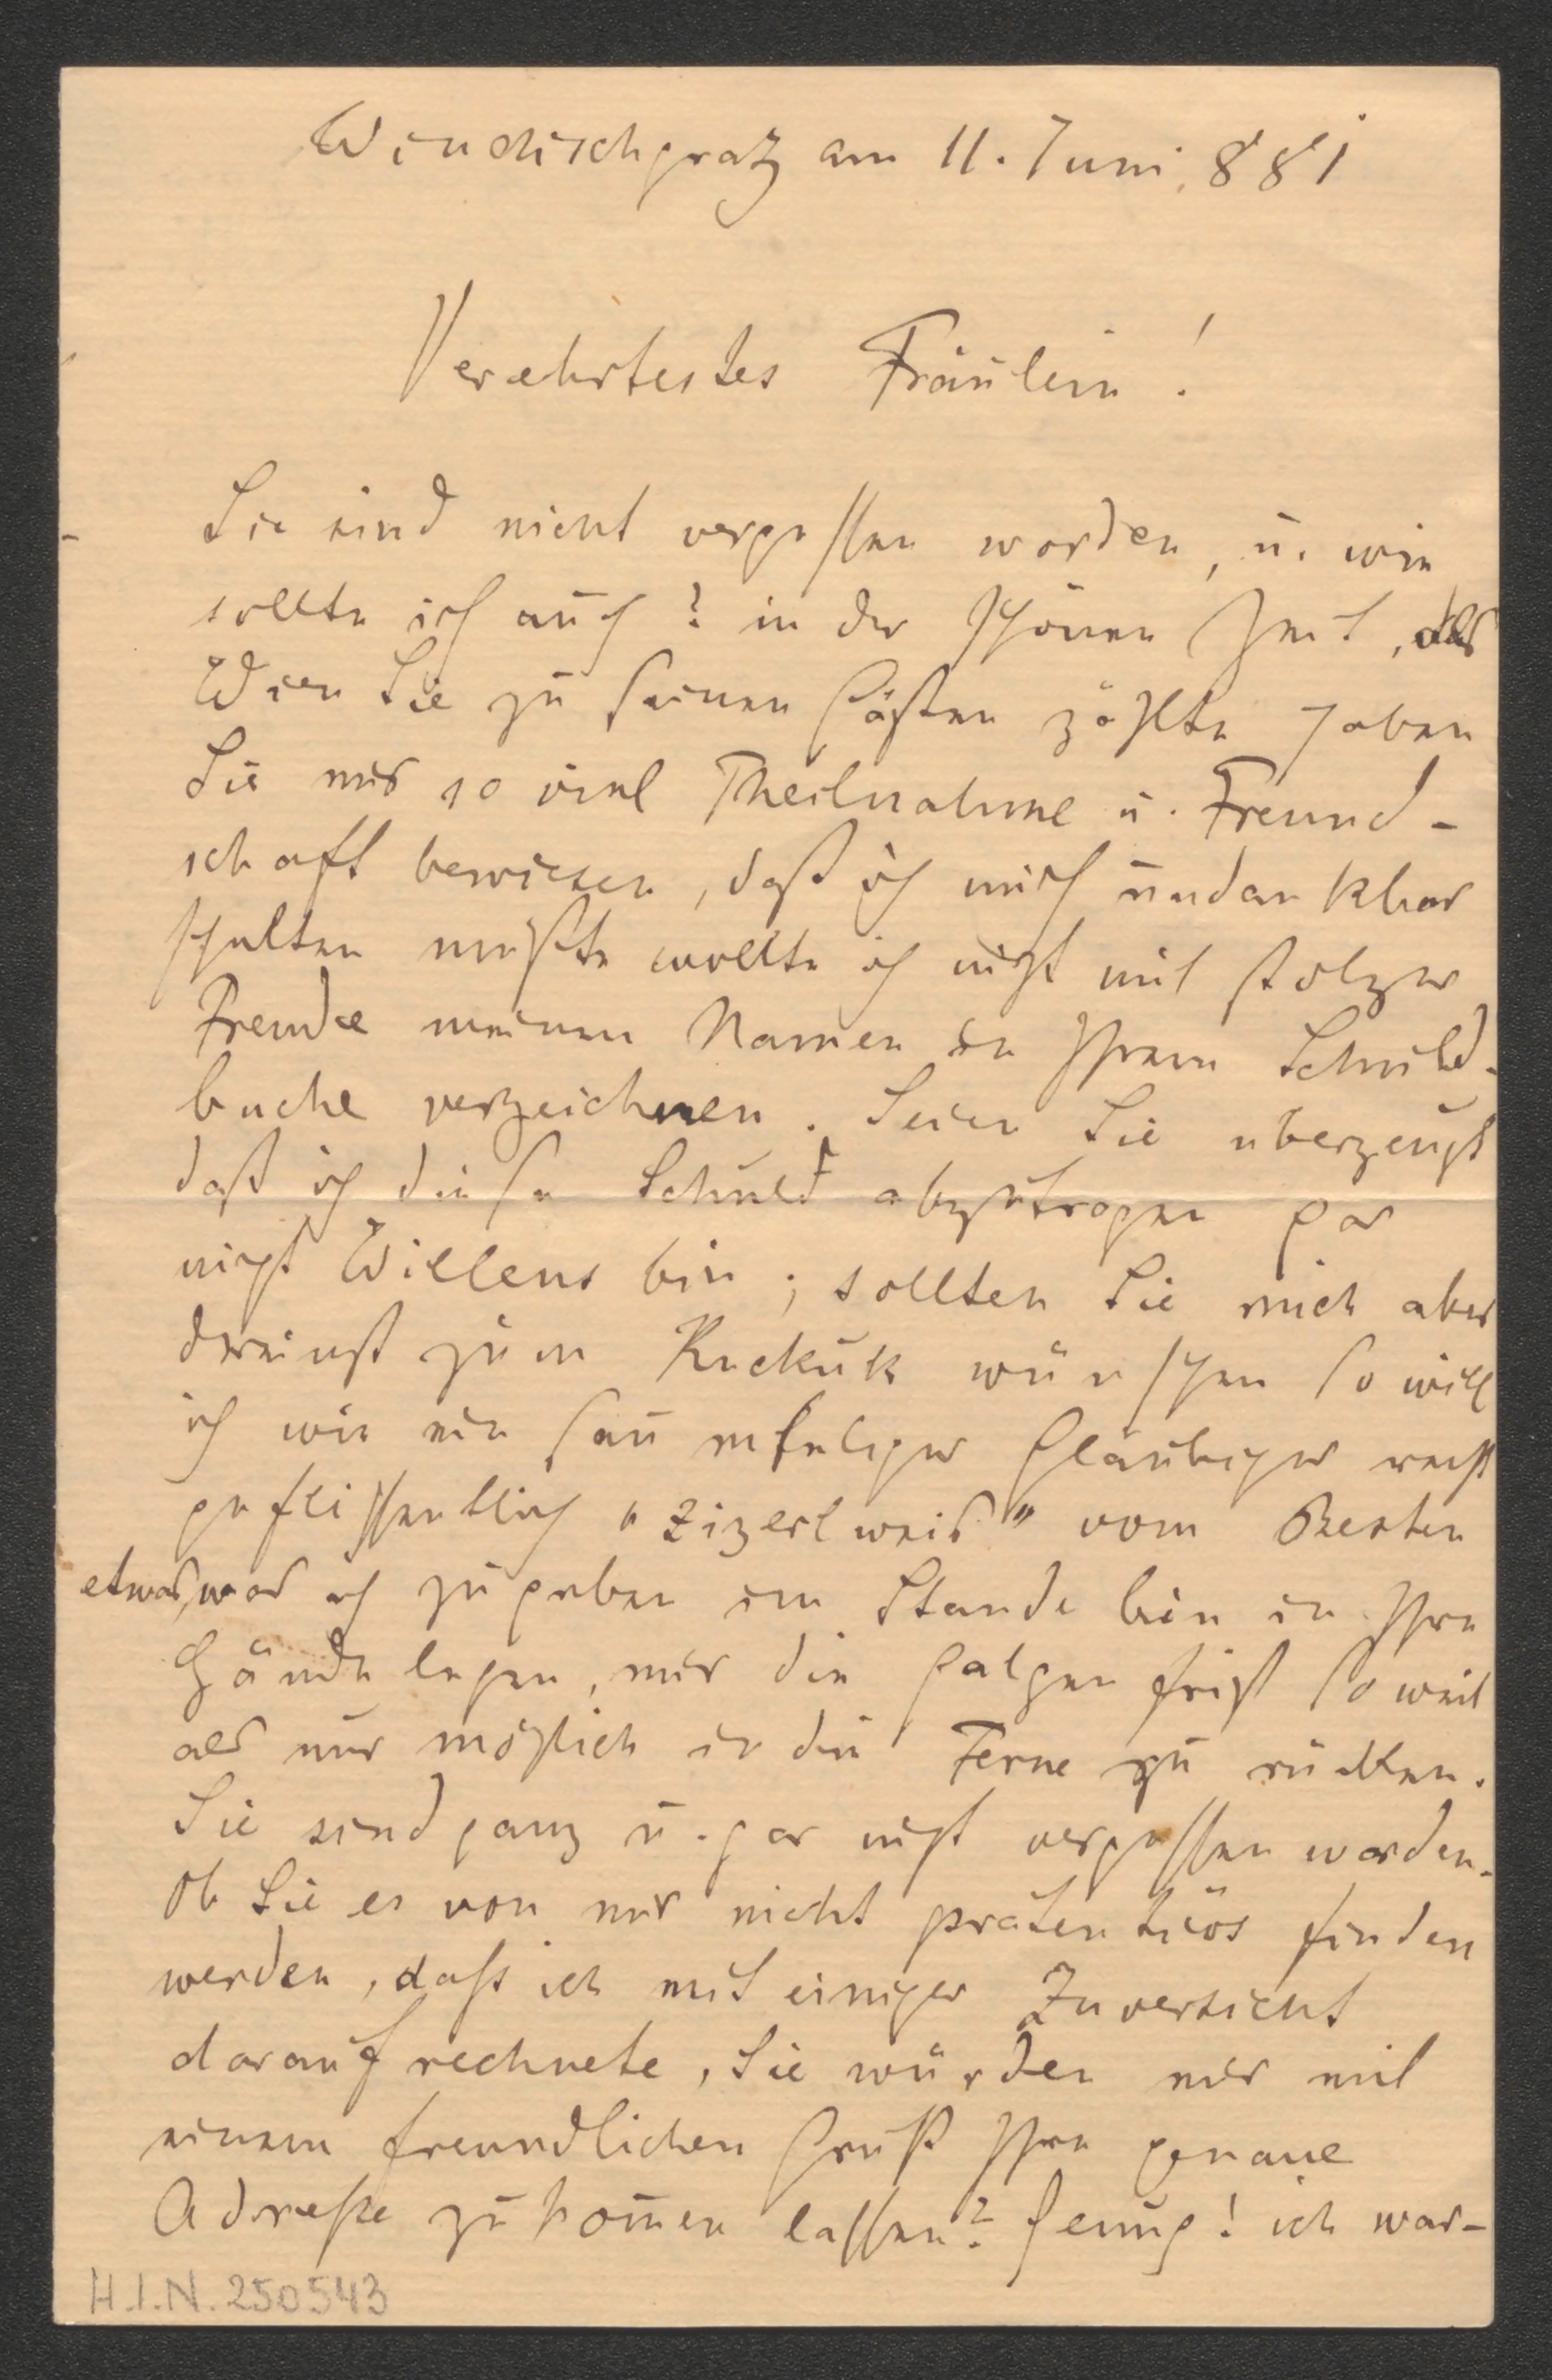 Windischgratz am 11. Juni 881
Verehrtestes Fräulein!
Sie sind nicht vergessen worden, u. wie
sollte ich auch? in der schönen Zeit, als
Wien Sie zu seinen Gästen zählte haben
Sie mir so viel Theilnahme u. Freund-
schaft bewiesen, daß ich mich undankbar
schelten müßte wollte ich nicht mit stolzer
Freude meinen Namen in Ihrem Schuld-
buche verzeichnen. Seien Sie überzeugt
daß ich diese Schuld abzutragen gar
nicht Willens bin; sollten Sie mich aber
dereinst zum Kuckuk wünschen so will
ich wie ein saumseliger Gläubiger recht
geflissentlich "zizerlweis" vom Besten
etwas, was ich zu geben im Stande bin in Ihre
Hände legen, mir die Galgenfrist so weit
als nur möglich in die Ferne zu rücken.
Sie sind ganz u. gar nicht vergessen worden.
Ob Sie es von mir nicht prätentiös finden
werden, dass ich mit einiger Zuversicht
darauf rechnete, Sie würden mir mit
einem freundlichen Gruß Ihre genaue
Adresse zukom̄en lassen? Genug! ich war-
H.I.N. 250543